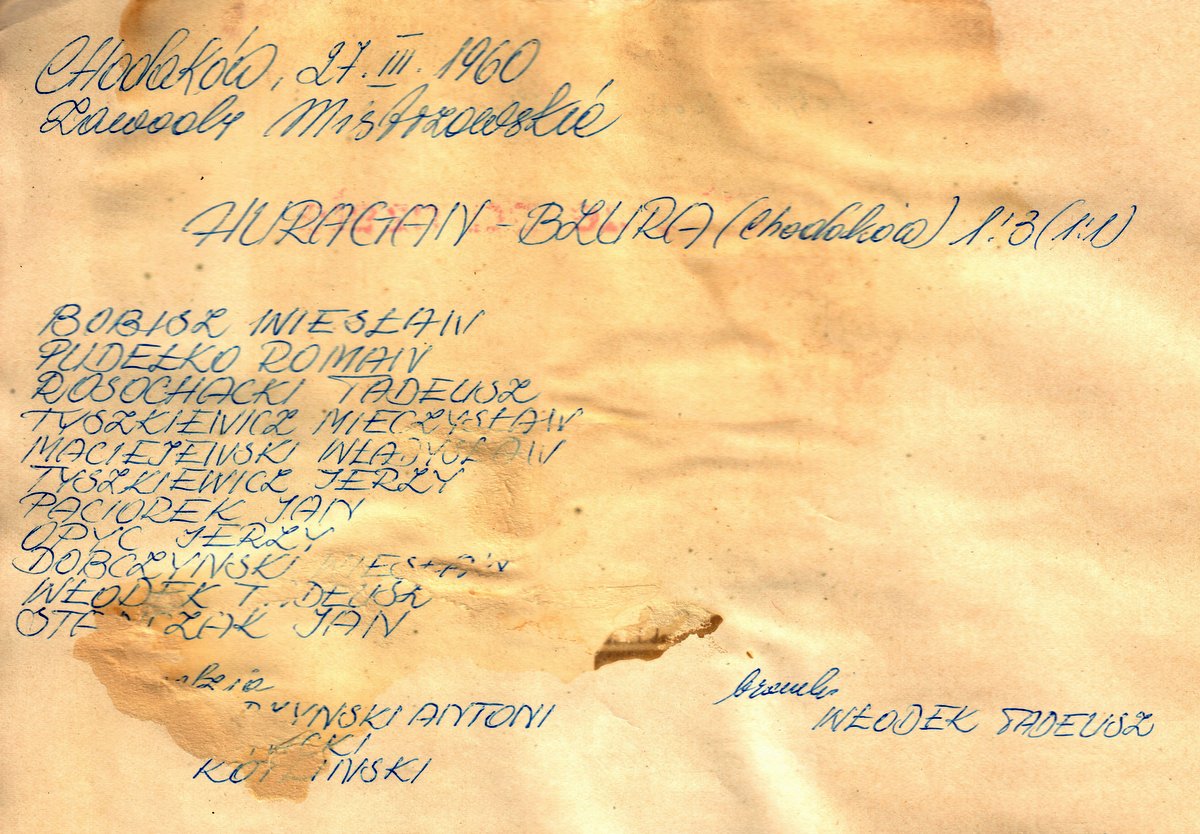 Chodaków, 27.III.1960
Zawody Mistrzowskie
HURAGAN - BZURA (Chodaków) 1:3 (1:1)
BOBISZ WIESŁAW
PUDEŁKO ROMAN
ROSOCHACKI TADEUSZ
TYSZKIEWICZ MIECZYSŁAW
MACIEJEWSKI WŁADYSŁAW
TYSZKIEWICZ JERZY
PACIOREK JAN
OPYC JERZY
DOBCZYNSKI WIESŁAW
WŁODEK TADEUSZ
JAN
YNSKI ANTONI
bramki
WŁODEK TADEUSZ